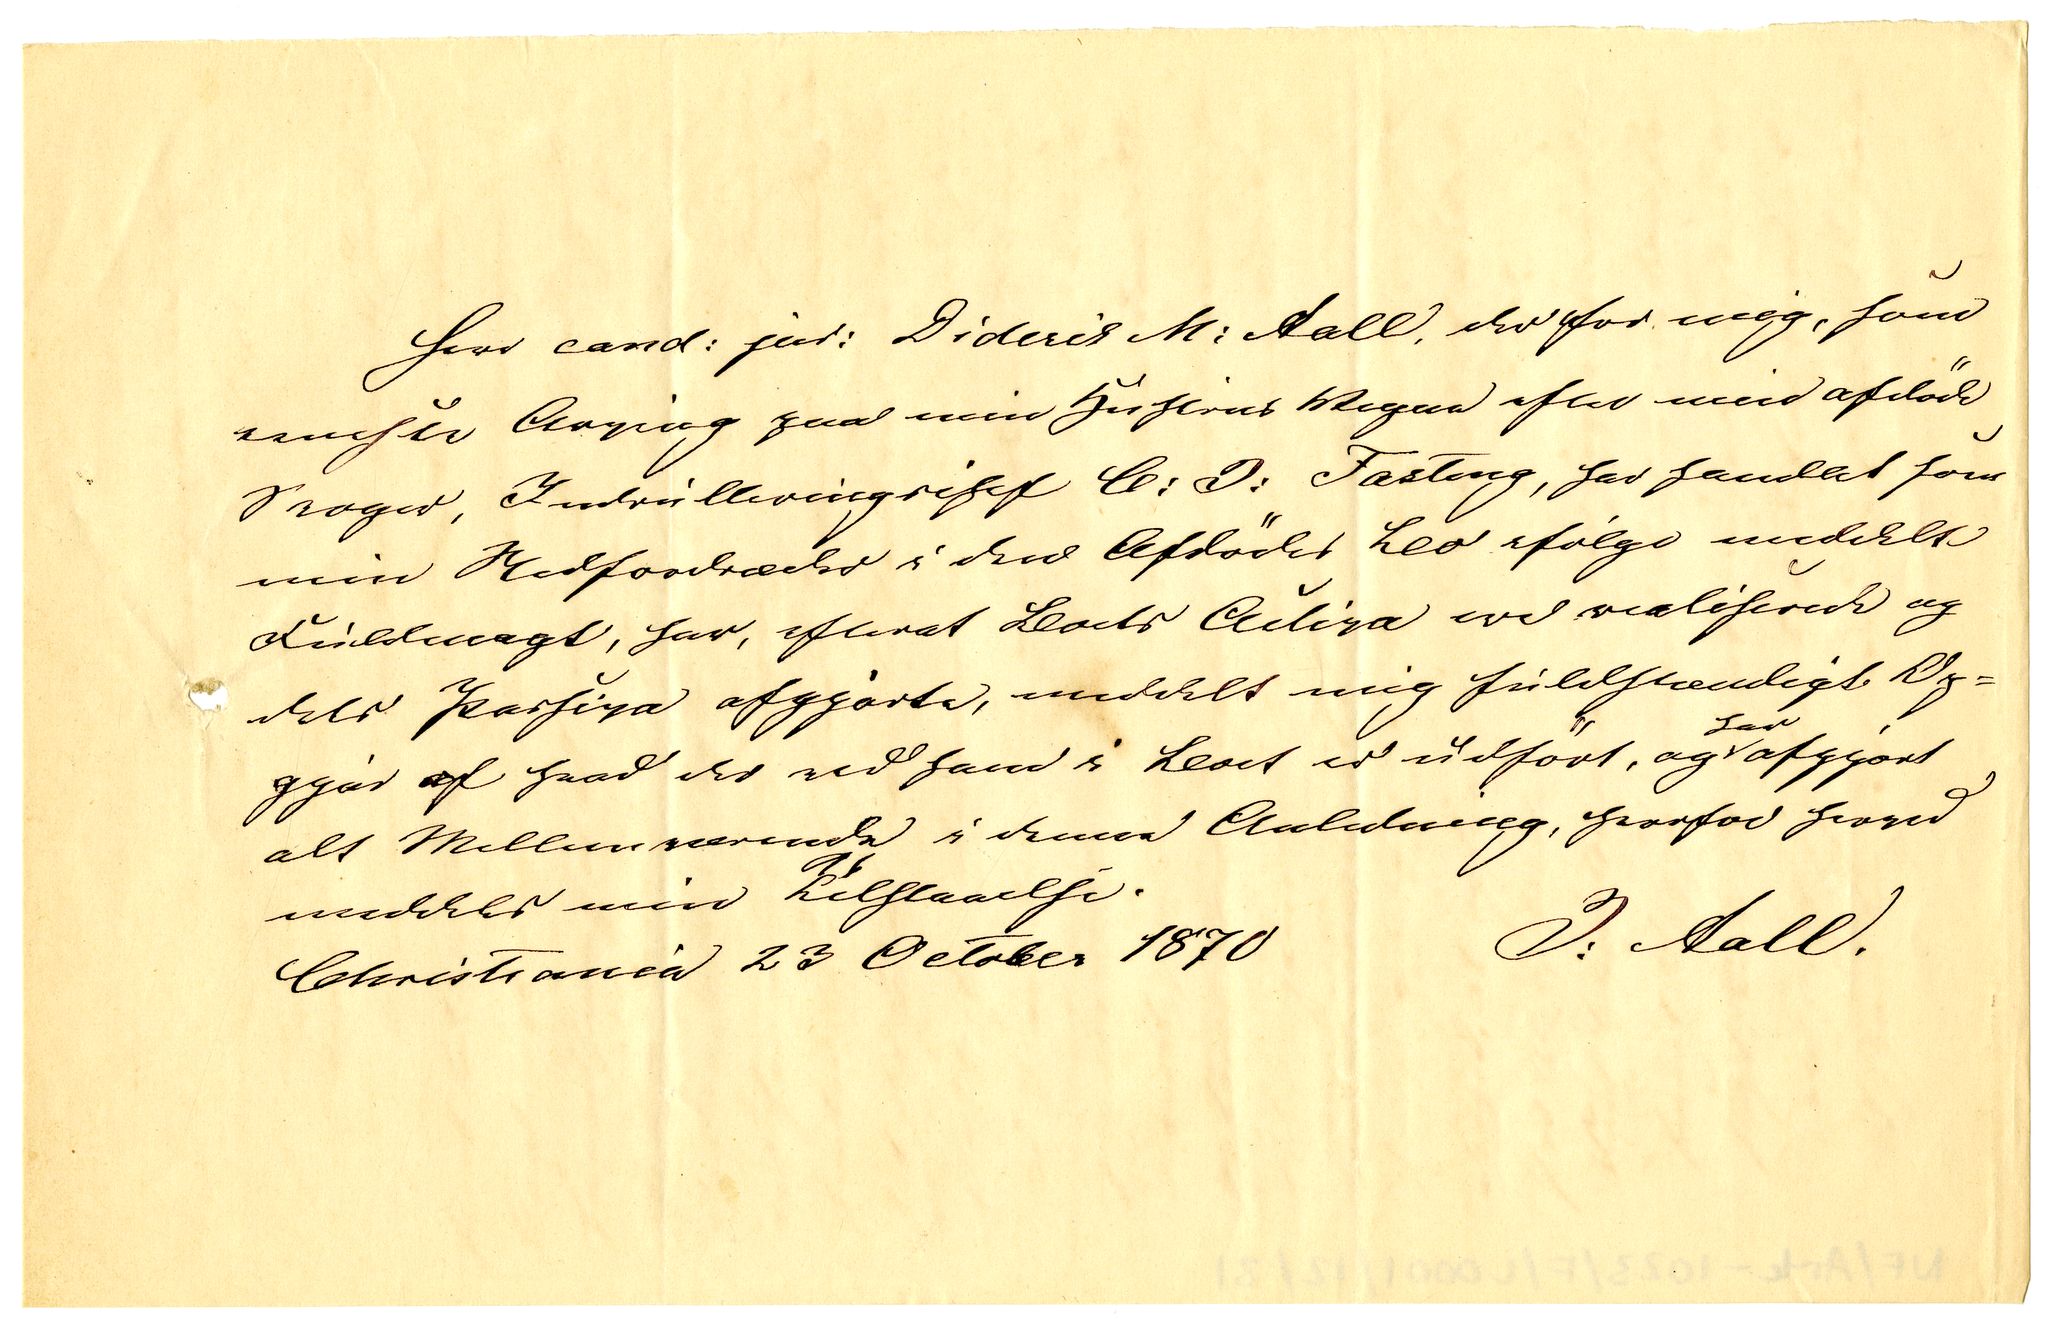 Herr cand: jur: Diderik M: Aall, der for mig, som
eneste Arving paa min Hustrues Vegne efter min afdöde
Svoger, Indrulleringschef C: D: Fasting, har handlet som
min Stedfortræder i den Afdödes Bo ifölge meddelt
Fuldmagt, har, efterat Boets Activa ere realiserede og
dets Passiva afgjorte, meddelt mig fuldstændigt Op=
gjör af hvad der ved ham i Boet er udfört, og har afgjort
alt Mellemværende i denne Anledning, hvorfor herved
meddeles min Tilstaaelse.
Christiania 23 October 1870 J: Aall.
NF/Ark-1023/F/L0001/12/21